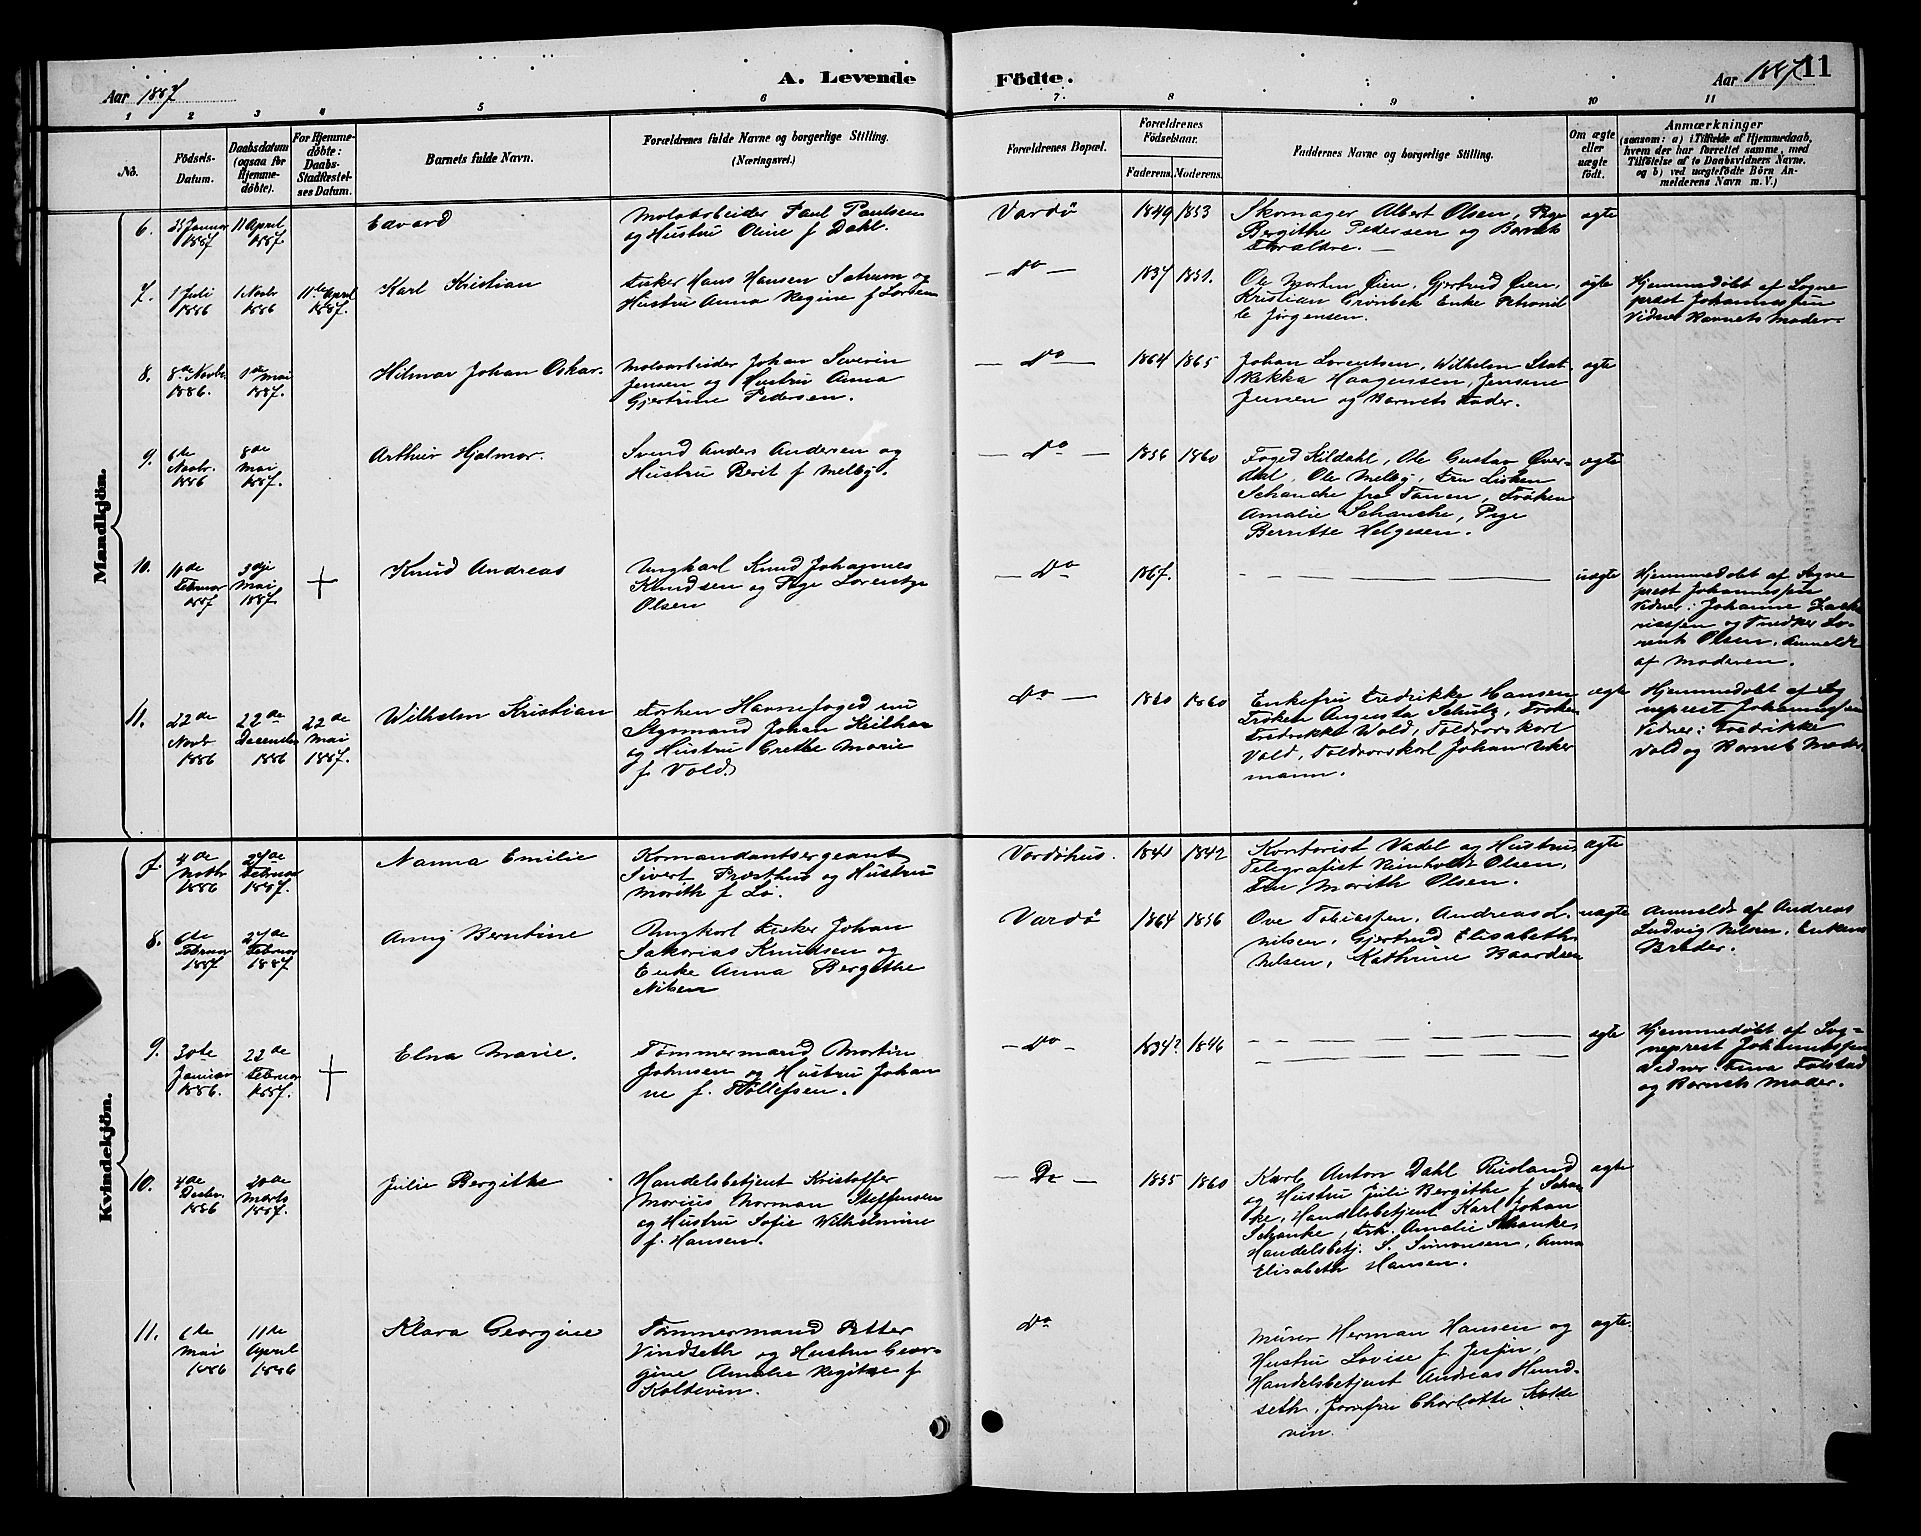 Aar 1887
A. Levende Födte.
Aar 1887
11
1 2 3 4 5 6 7. 8 9 10 11
No.
Födsels-
Datum.
Daabsdatum
(ogsaa for
Hjemme-
döbte).
For Hjemme-
döbte:
Daabs-
Stadfæstel-
ses Datum.
Barnets fulde Navn.
Forældrenes fulde Navne og borgerlige Stilling.
(Næringsvei.)
Forældrenes Bopæl.
Forældrenes
Födselsaar.
Faderens. Moderens.
Faddernes Navne og borgerlige Stilling.
Om ægte
eller
uægte
födt.
Anmærkninger
(saasom: a) i Tilfælde af Hjemmedaab,
hvem der har forrettet samme, med
Tilföielse af to Daabsvidners Navne.
og b) ved uægtefödte Börn An-
melderens Navn m. V.)
Mandkjön.
6.
Januar
1887
11 April
1887
Edvard
Moloarbeider Paul Paulsen
og Hustru Oline f Dahl.
Vardö
1849 1853
Skomager Albert Olsen, Pige
Bergithe Pedersen og Barnets
Forældre. —
ægte
7.
1 Juli
1886
1 Novbr
1886
11te April
1887.
Karl Kristian
Fisker Hans Hansen Sætrum og
Hustru Anna Regine f Lorsen
— Do —
1837 1851.
Ole Morten Öien, Gjertrud Öien,
Kristian Grönbek Enke Petronil
le Jörgensen.
ægte
Hjemmedöbt af Sogne
prest Johannessen
Vidner Barnets Moder.
8.
8de Novbr.
1886.
1de Mai
1887.
Hilmar Johan Oskar.
Moloarbeider Johan Severin
Jensen og Hustru Anna
Gjertrine Pedersen.
— Do —
1864 1865
Johan Lorentsen, Wilhelm
Rikka Haagensen, Jensine
Jensen og Barnets Fader.
ægte
9.
6de
Novbr.
1886
8de
Mai
1887.
Arthur Hjalmar.
Svend Anders Andersen og
Hustru Berit f Melbÿ.
— Do —
1856 1860
Foged Kildahl, Ole Gustav Över-
dal, Ole Melbÿ, Fru Lisken
Schanche fra Tanen, Fröken
Amalie Schanche, Pige
Berritte Helgesen.
ægte
10.
Februar
1887
3die
Mai
1887
+
Knud Andreas
Ungkarl Knud Johannes
Knudsen og Pige Lorentze
Olsen
— Do
1867.
uægte
Hjemmedöbt af Sogne
prest Johannessen
Vidner: Johanne Zach
riassen og Snedker Lo-
rents Olsen. Anmeldt
af Moderen.
11.
22de
Novbr
1886
22de
Decembr
1886
22de
Mai
1887.
Wilhelm Kristian
Forhen Havnefoged nu
Styrmand Johan Keilhau
og Hustru Grethe Marie
f Vold.
Do —
1860 1860
Enkefru Fredrikke Hansen
Fröken Augusta Schulz, Fröken
Fredrikke Vold, Toldrorskarl
Vold, Toldrorskarl Johan
mann.
ægte
Hjemmedöbt af Sog
neprest Johannessen
Vidner: Fredrikke
Vold og Barnets Moder
Kvindekjön.
7.
4de
Novbr
1886
27de
Februar
1887.
Nanna Emilie
Komandantsergeant
Sivert Prosthus og Hustru
Morith f Lö.
Vardöhus.
1841 1842
Kontorist Vadel og Hustru
Telegrafist Reinholdt Olsen,
Fru Morith Olsen.
ægte
8.
6de
Februar
1887
27de
Februar
1887
Anny Berntine
Ungkarl Fisker Johan
Sakarias Knudsen og
Enke Anna Bergithe
Nilsen
Vardö
1864 1856
Ove Tobiassen, Andreas L.
Nilsen, Gjertrud Elisabeth
Nilsen, Kathrine Baardsen
uægte
Anmeldt af Andreas
Ludvig Nilsen, Enkens
Broder.
9.
30te
Januar
1886.
22de
Februar
1887.
+
Elna Marie.
Tömmermand Martin
Johnsen og Hustru Johan
ne f. Tollefsen.
— Do —
1834? 1846
ægte
Hjemmedöbt af Sog-
neprest Johannessen
Vidner: Fina Folstad
og Barnets Moder.
10.
4de
Decbr.
1886
20de
Marts
1887.
Julie Bergithe
Handelsbetjent Kristoffer
Morius Norman Steffensen
og Hustru Sofie Wilhelmine
f. Hansen.
— Do —
1855 1860
Karl Anton Dahl Rusland
og Hustru Juli Bergithe f Schan
ke, Handelsbetjent Karl Johan
Schanke, Frk. Amalie Schanke,
Handelsbetj. S. Simonsen, Anna
Elisabeth Hansen.
ægte
11.
6de
Mai
1886
11de
April
1886
Klara Georgine
Tömmermand Petter
Vindseth og Hustru Geor-
gine Amalie Regitze f
Koldevin.
Do
Murer Herman Hansen og
Hustru Lovise f.
Handelsbetjent Andreas Hund-
seth, Jomfru Charlotte Kolde
vin.
ægte.